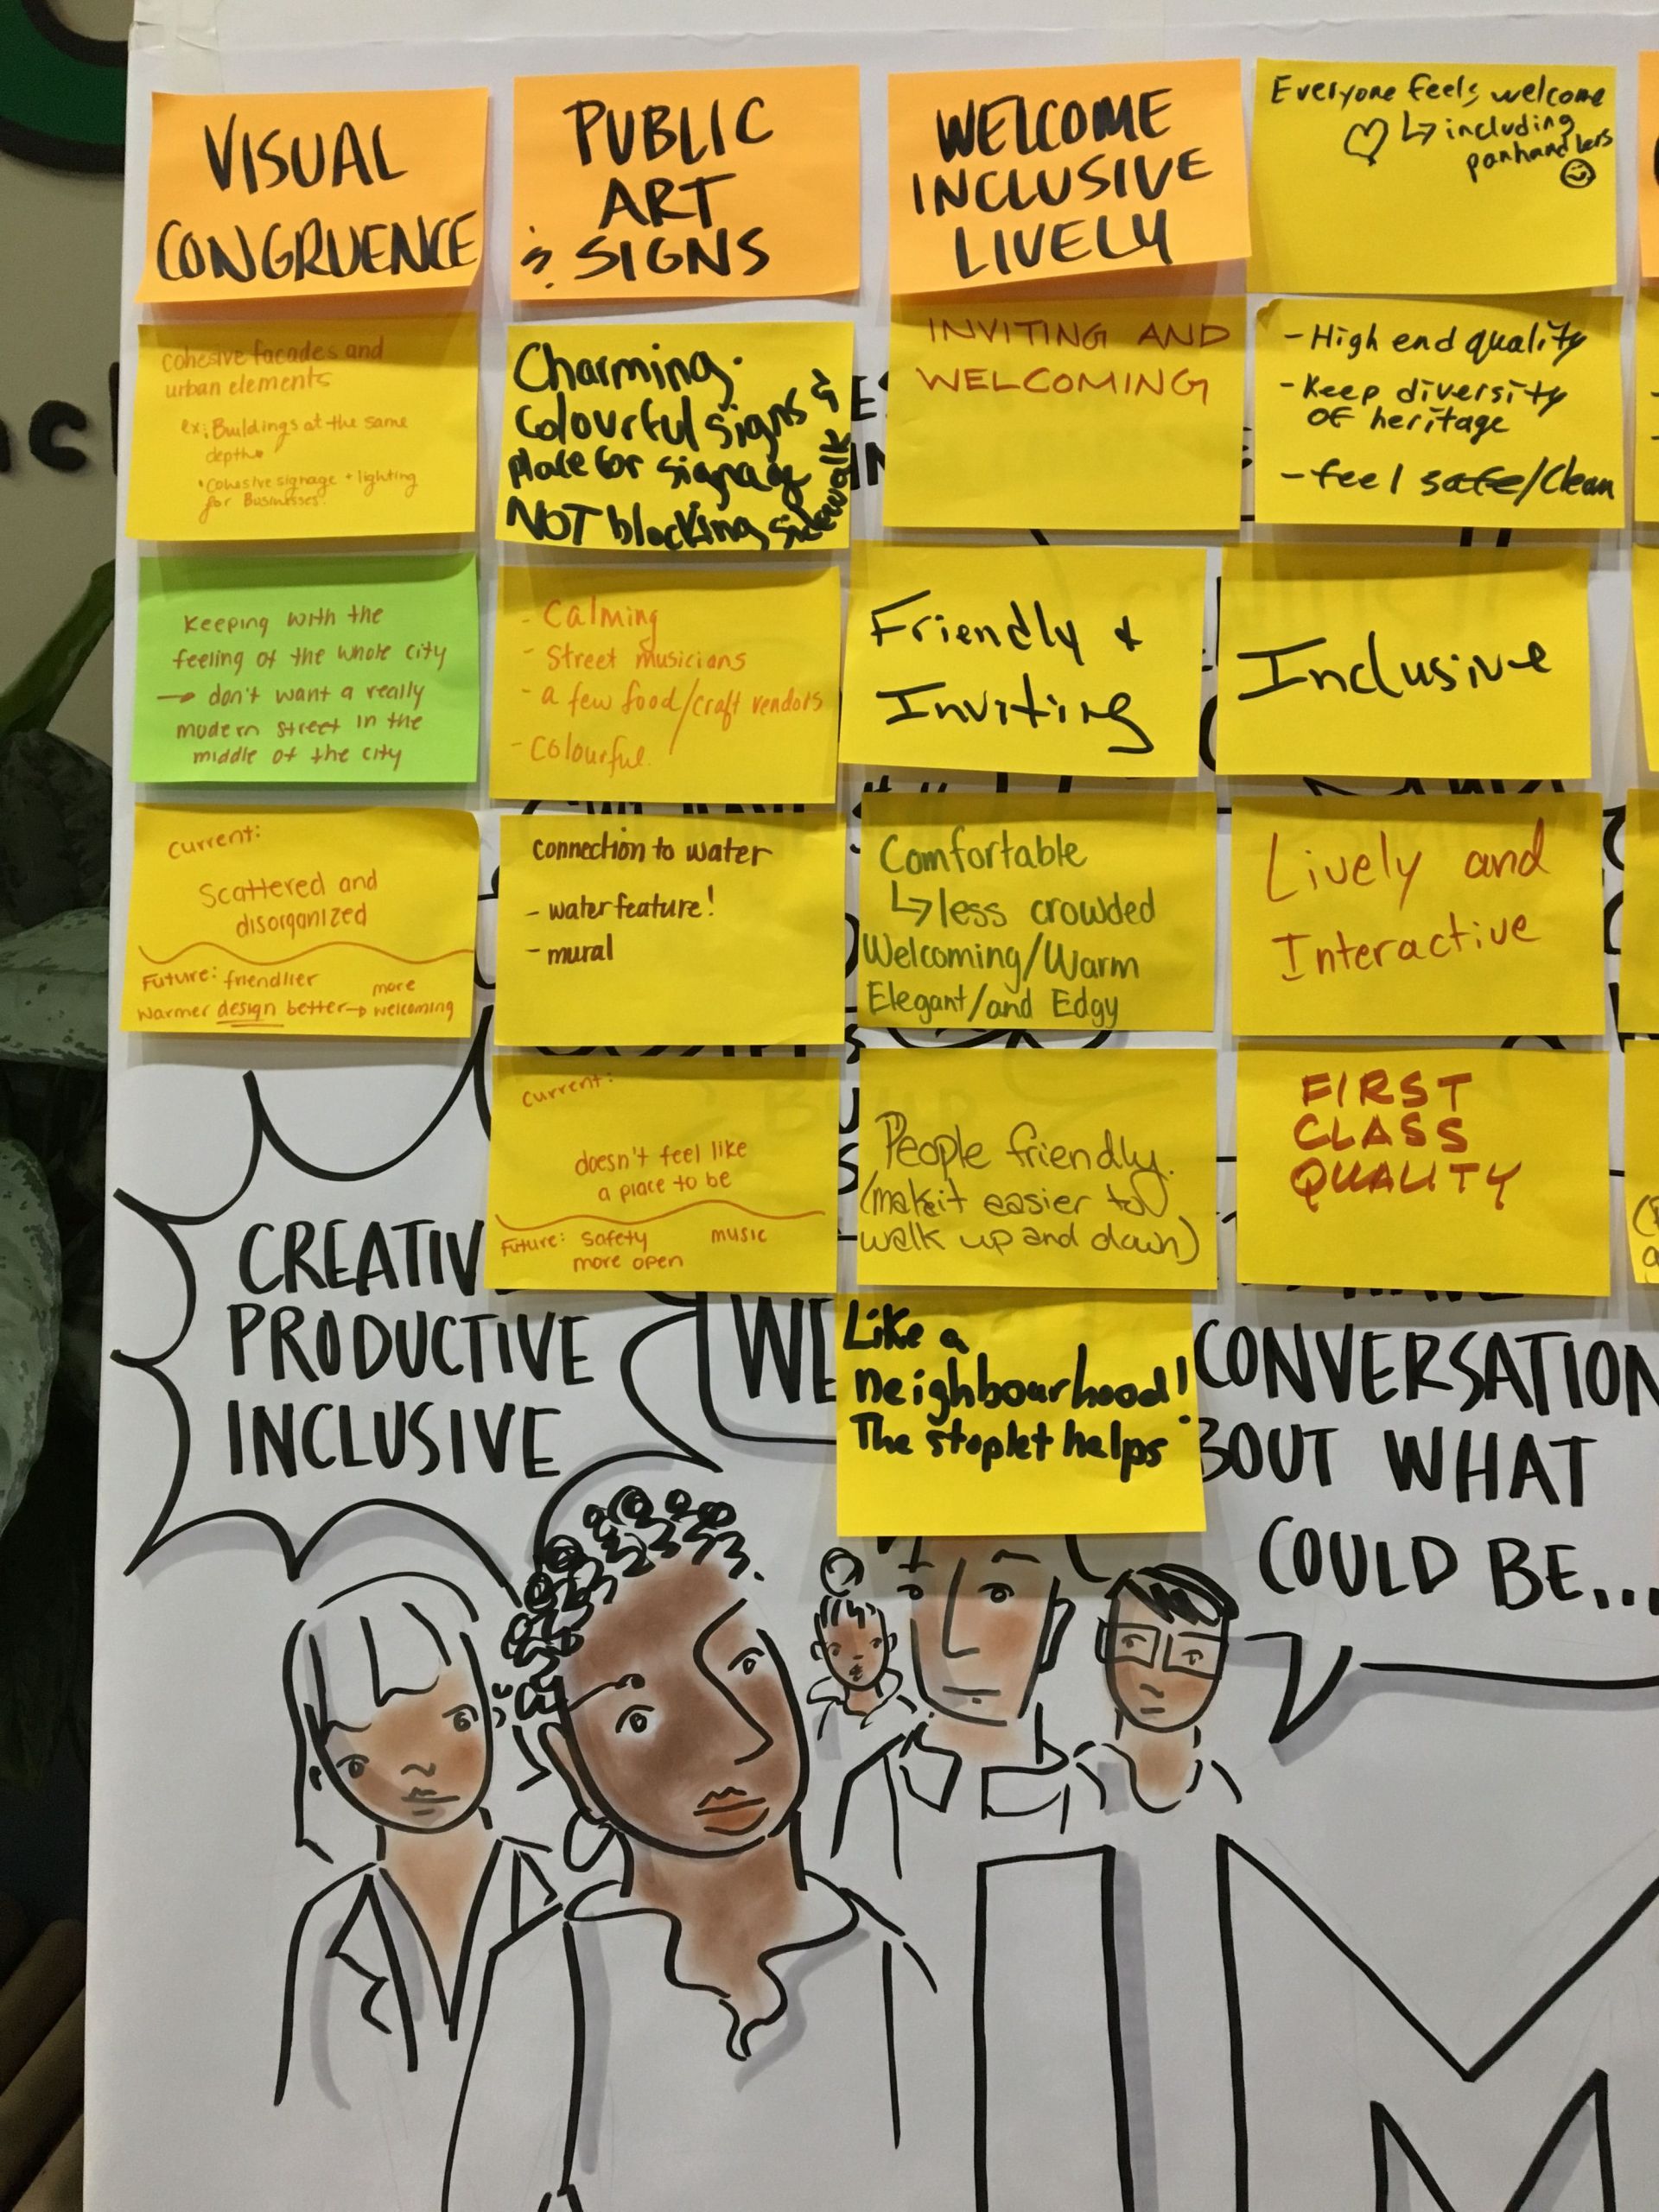 VISUAL
CONGRUENCE
cohesive facades and
urban elements
ex: Buildings at the same
depth
• Cohesive signage + lighting
for Businesses.
Keeping with the
feeling of the whole city
→ don't want a really
modern street in the
middle of the city
Current:
Scattered and
disorganized
Future: friendlier
more
warmer design better → welcoming
PUBLIC
ART
& SIGNS
Charming.
Colourful signs &
place for signage
NOT blocking sidewalk
- Calming
- Street musicians
- a few food/craft vendors
- Colourful.
connection to water
- water feature!
- mural
Current:
doesn't feel like
a place to be
Future: Safety music
more open
WELCOME
INCLUSIVE
LIVELY
INVITING AND
WELCOMING
Friendly +
Inviting
Comfortable
↳ less crowded
Welcoming/Warm
Elegant/and Edgy
People friendly.
(make it easier to
walk up and down)
Like a
neighbourhood!
The stoplet helps
Everyone feels welcome
♡ ↳ including
panhandlers
☺
- High end quality
- Keep diversity
of heritage
- feel safe/Clean
Inclusive
Lively and
Interactive
FIRST
CLASS
QUALITY
CREATIV
PRODUCTIVE
INCLUSIVE
WE
CONVERSATION
BOUT WHAT
COULD BE...
IM